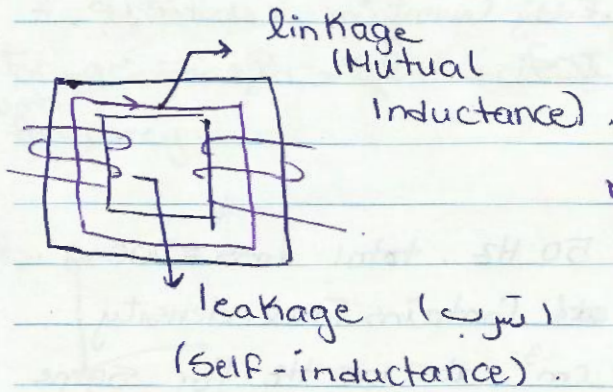 linkage
(Mutual
Inductance).
50 Hz. total
leakage (تسرب)
(Self-inductance).